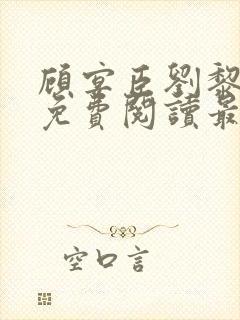 顧宴臣劉黎
免費閱讀最
空口言